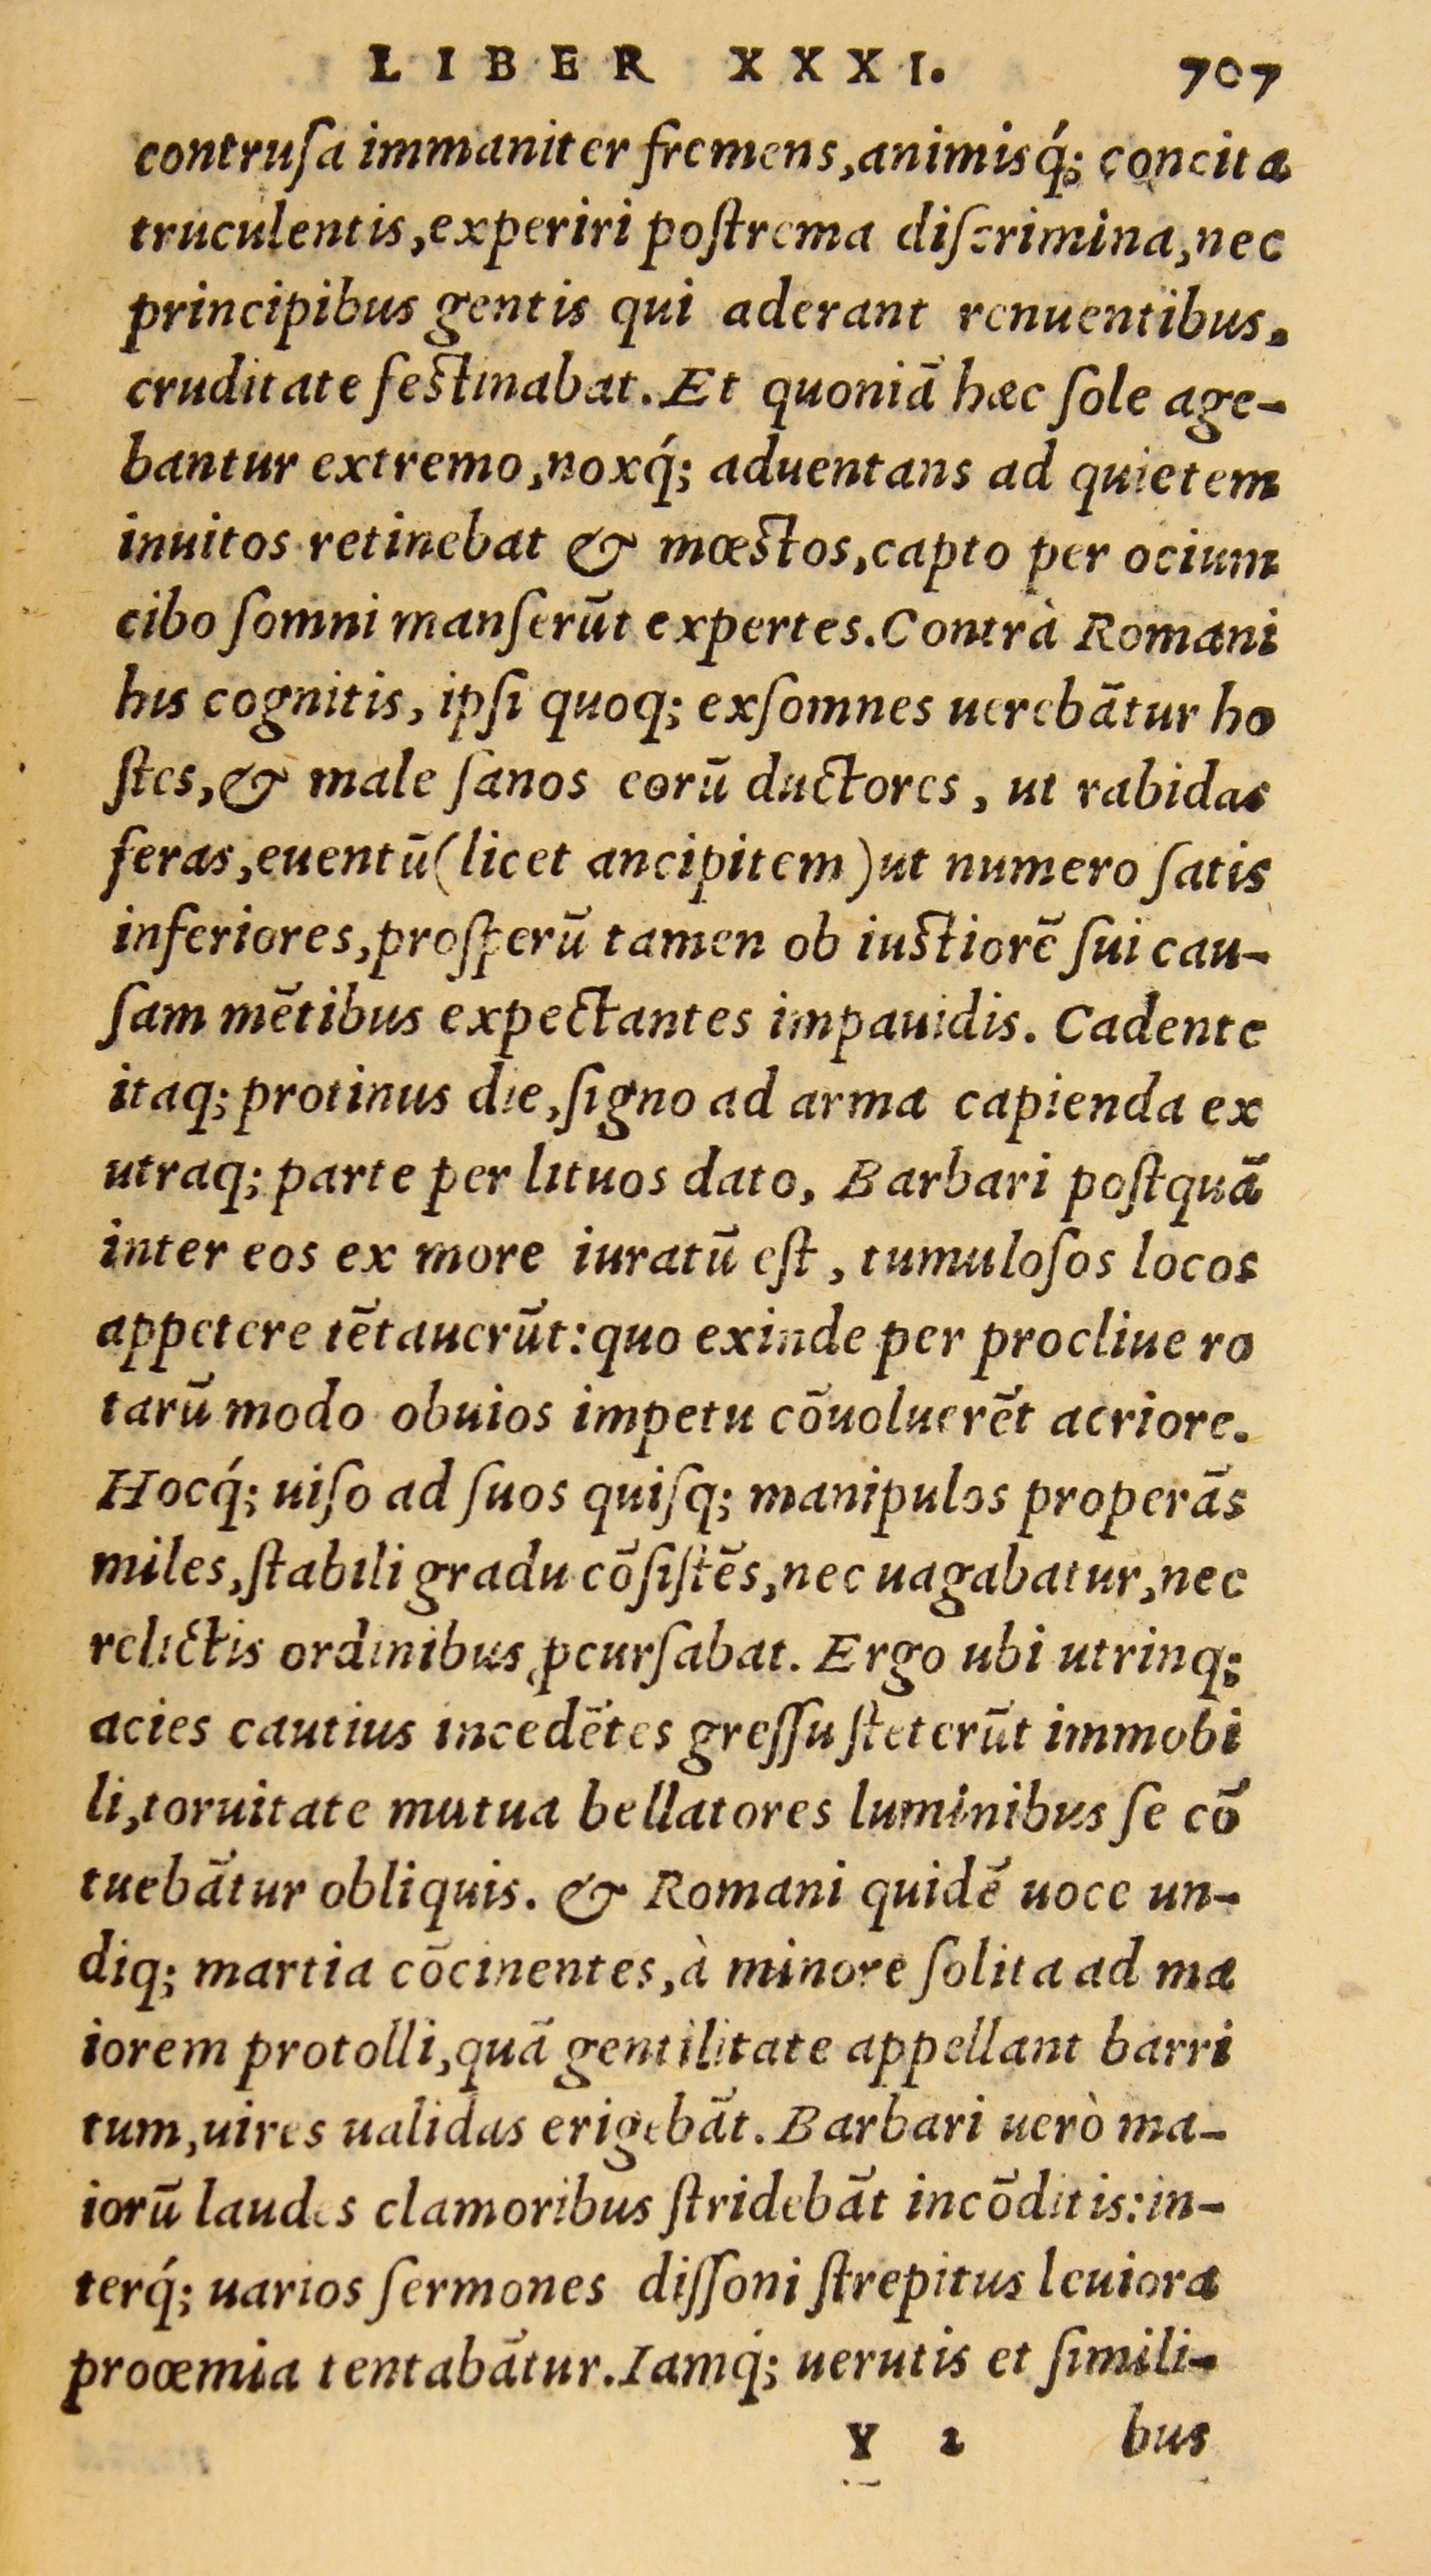 LIBER XXXI. 707
contrusa immaniter fremens, animisq́; concita
truculentis, experiri postrema discrimina, nec
principibus gentis qui aderant renuentibus,
cruditate festinabat. Et quoniā hæc sole age-
bantur extremo, noxq́; aduentans ad quietem
inuitos retinebat & mœstos, capto per ocium
cibo somni manserūt expertes. Contrà Romani
his cognitis, ipsi quoq; exsomnes uerebātur ho
stes, & male sanos eorū ductores, ut rabidas
feras, euentū (licet ancipitem) ut numero satis
inferiores, prosperū tamen ob iustiorē sui cau-
sam mētibus expectantes impauidis. Cadente
itaq; protinus die, signo ad arma capienda ex
utraq; parte per lituos dato, Barbari postquā
inter eos ex more iuratū est, tumulosos locos
appetere tētauerūt: quo exinde per procliue ro
tarū modo obuios impetu cōuoluerēt acriore.
Hocq́; uiso ad suos quisq; manipulos properās
miles, stabili gradu cōsistēs, nec uagabatur, nec
relictis ordinibus ꝓcursabat. Ergo ubi utrinq;
acies cautius incedētes gressu steterūt immobi
li, toruitate mutua bellatores luminibus se cō
tuebātur obliquis. & Romani quidē uoce un-
diq; martia cōcinentes, à minore solita ad ma
iorem protolli, quā gentilitate appellant barri
tum, uires ualidas erigebāt. Barbari uerò ma-
iorū laudes clamoribus stridebāt incōditis: in-
terq́; uarios sermones dissoni strepitus leuiora
proœmia tentabātur. Iamq́; uerutis et simili-
Y 2 bus